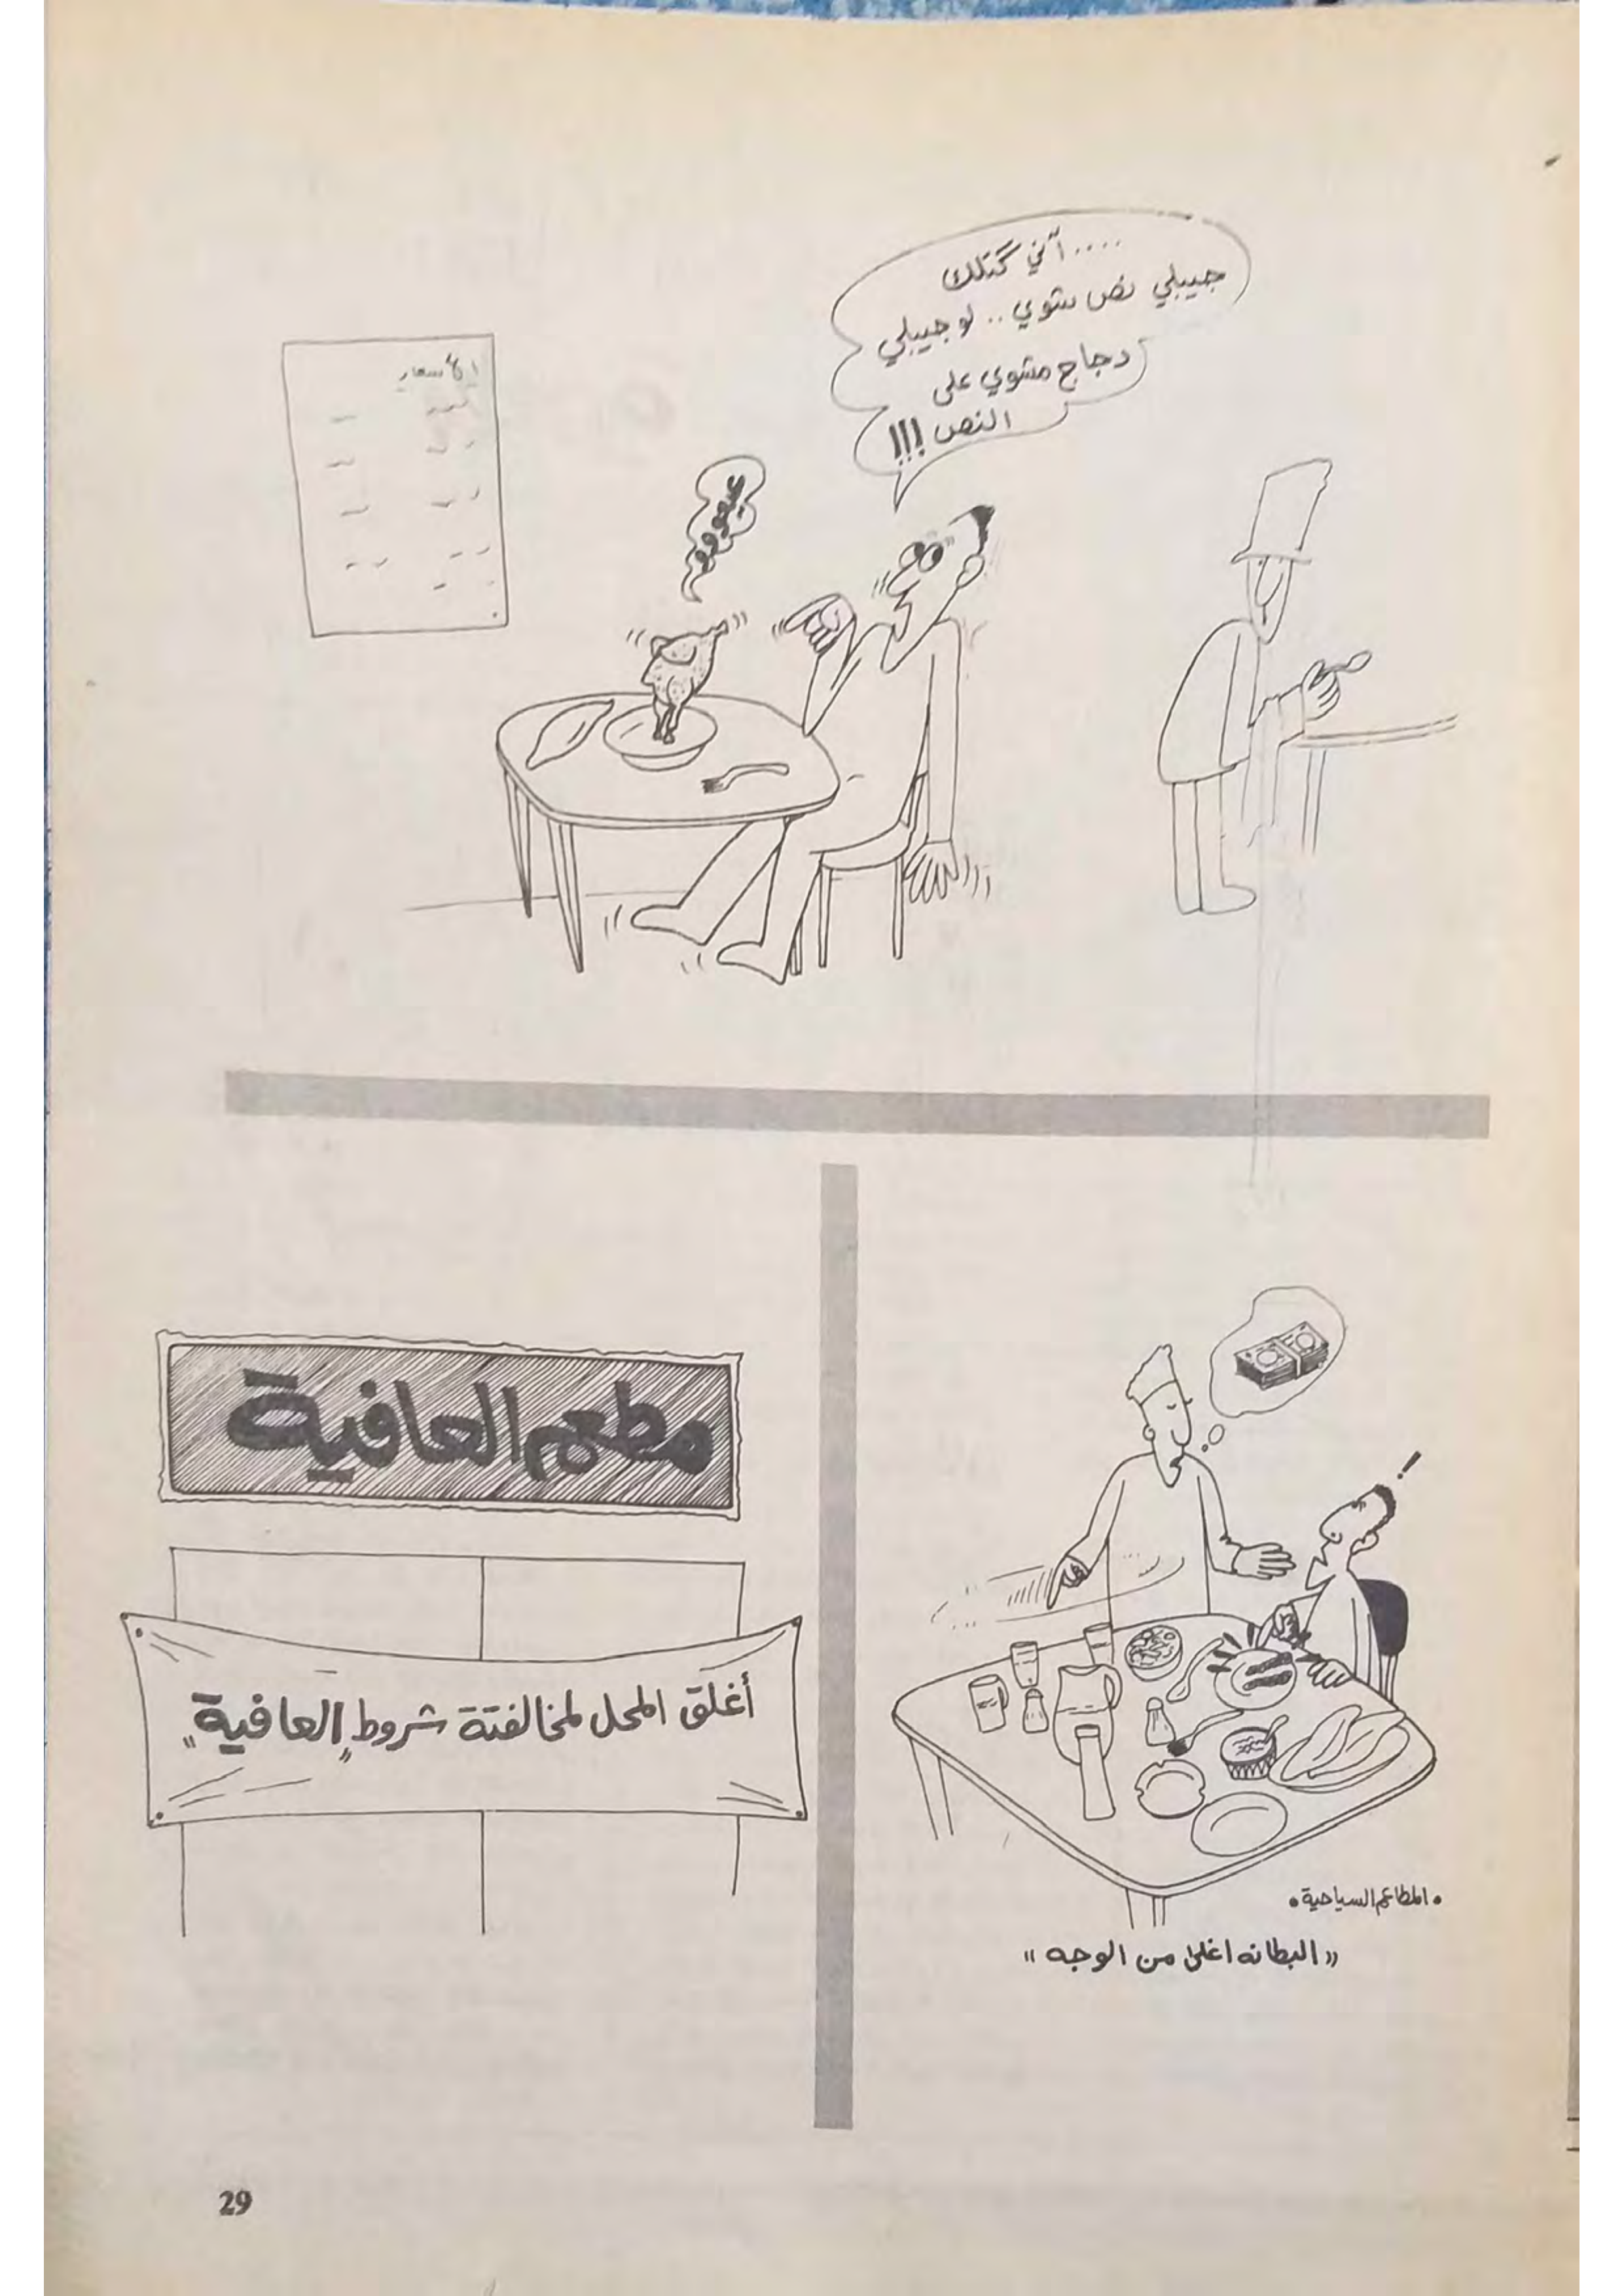 .... آني گتلك
جيبلي نص شوي .. لو جيبلي
دجاج مشوي على
النص !!!
الأسعار
عيعووو
مطعم العافية
أغلق المحل لمخالفتة شروط "العافية"
• المطاعم السياحية •
« البطانه اغلى من الوجه »
29